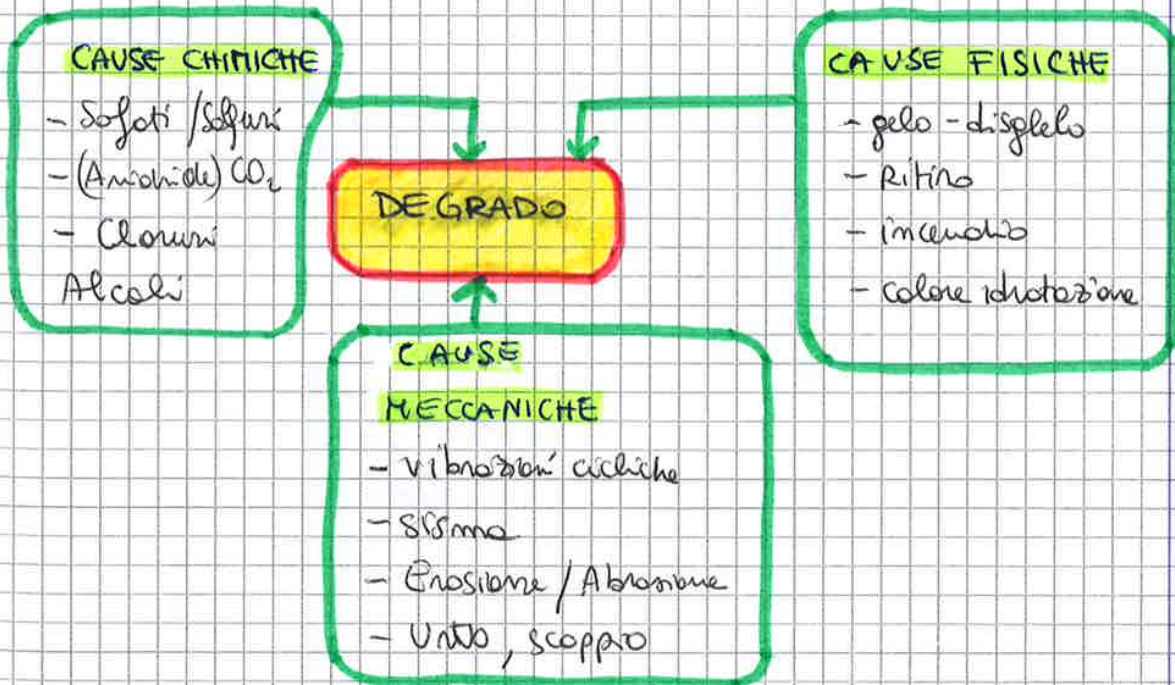 CAUSE CHIMICHE
- Solfati / Solfuri
- (Anidride) CO₂
- Cloruri
Alcali
DEGRADO
CAUSE FISICHE
- gelo - disgelo
- Ritiro
- incendio
- calore idratazione
CAUSE
MECCANICHE
- vibrazioni cicliche
- sisma
- Erosione / Abrasione
- Urto, scoppio